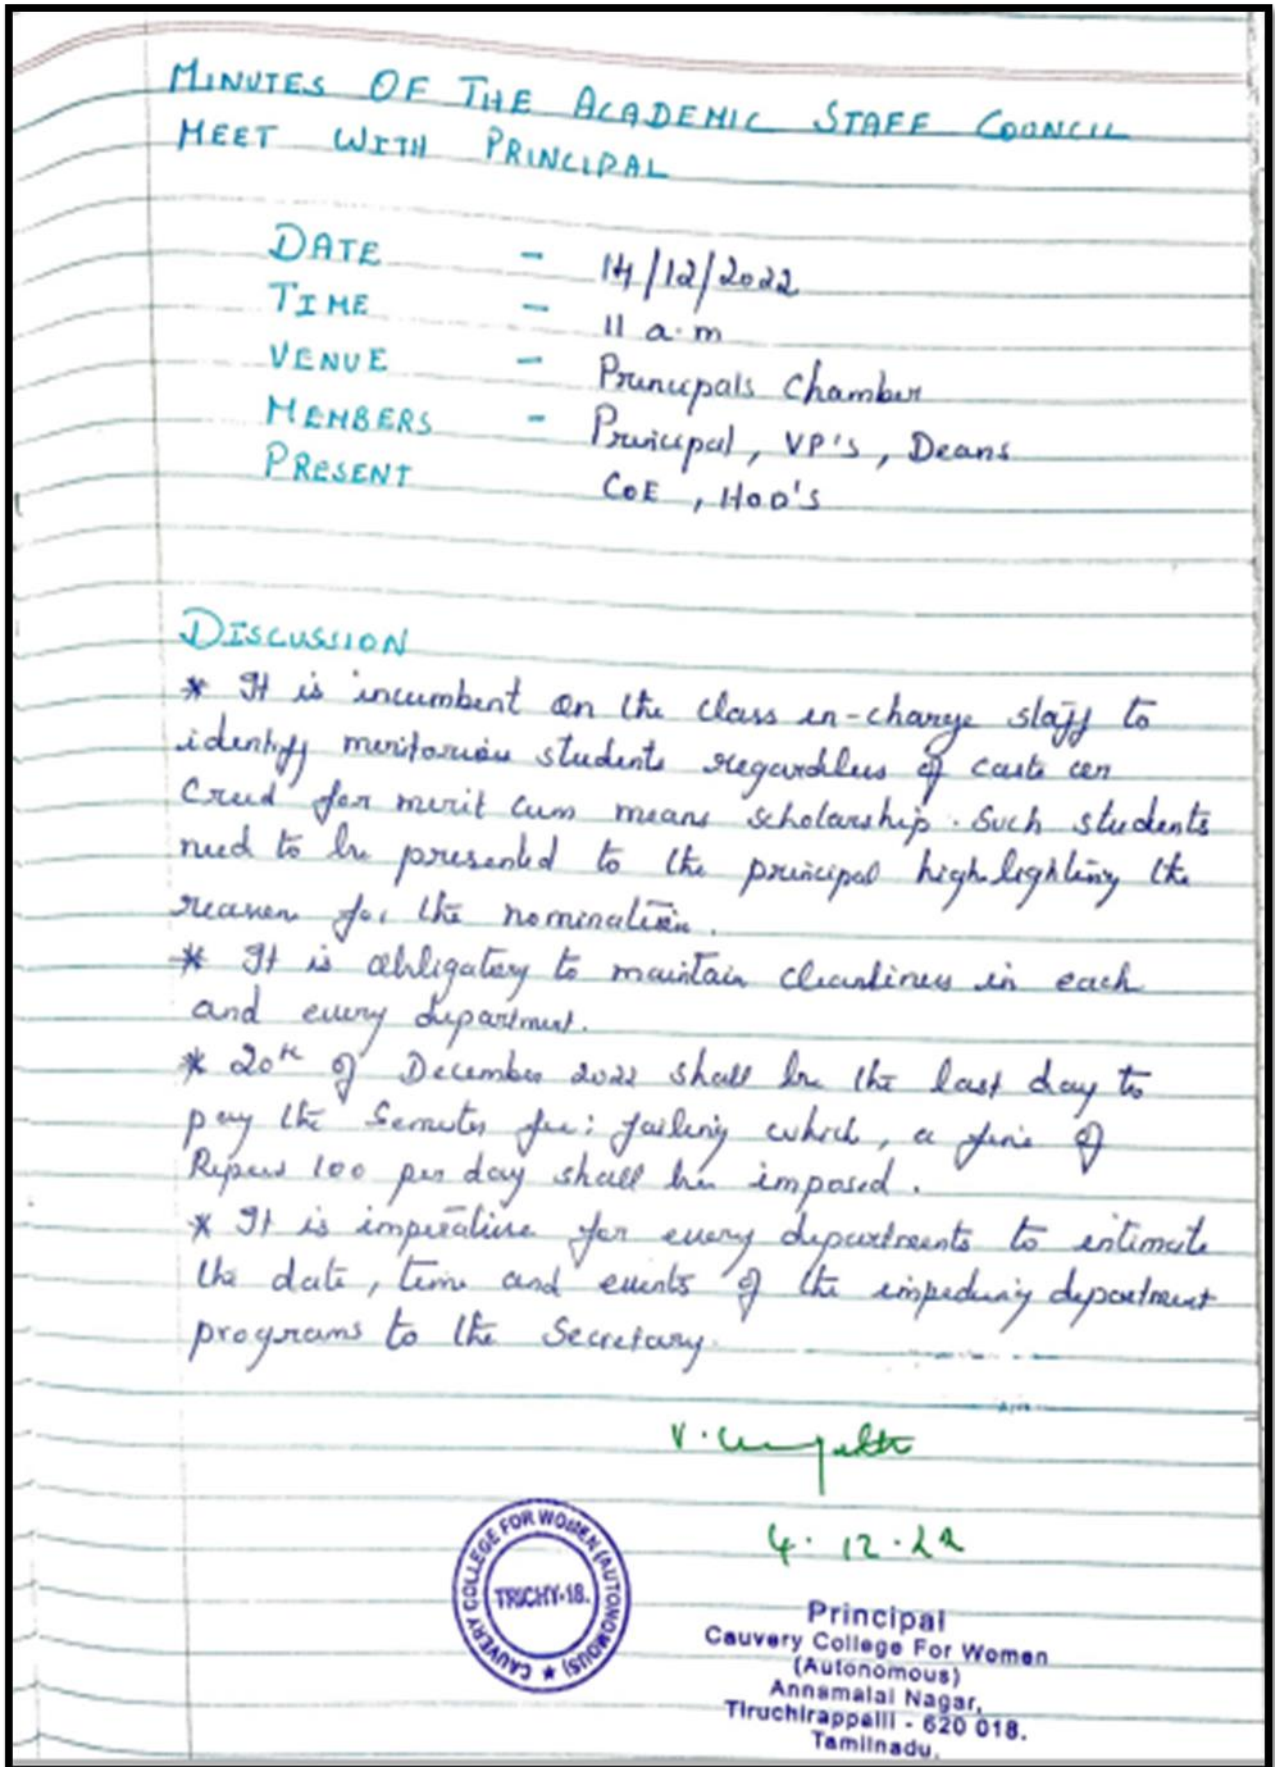 MINUTES OF THE ACADEMIC STAFF COUNCIL
MEET WITH PRINCIPAL
DATE - 14/12/2022
TIME - 11 a.m
VENUE - Principals Chamber
MEMBERS - Principal, VP's, Deans
PRESENT COE, HOD'S
DISCUSSION
* It is incumbent on the class in-charge staff to
identify meritorious students regardless of caste or
Creed for merit cum means scholarship. Such students
need to be presented to the principal highlighting the
reason for the nomination.
* It is obligatory to maintain cleanliness in each
and every department.
* 20th of December 2022 shall be the last day to
pay the Semester fee; failing which, a fine of
Rupees 100 per day shall be imposed.
* It is imperative for every departments to intimate
the date, time and events of the impeding department
programs to the Secretary.
V.
4.12.22
CAUVERY COLLEGE FOR WOMEN (AUTONOMOUS)
TRICHY-18.
Principal
Cauvery College For Women
(Autonomous)
Annamalai Nagar,
Tiruchirappalli - 620 018.
Tamilnadu.